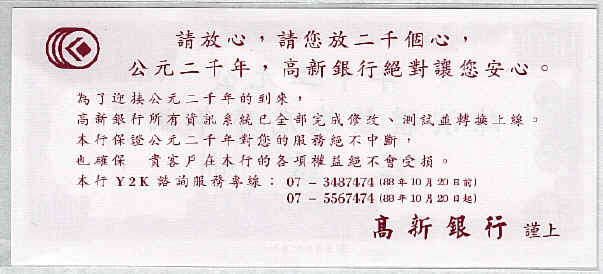 請放心，請您放二千個心，
公元二千年，高新銀行絕對讓您安心。
為了迎接公元二千年的到來，
高新銀行所有資訊系統已全部完成修改、測試並轉換上線。
本行保證公元二千年對您的服務絕不中斷，
也確保　貴客戶在本行的各項權益絕不會受損。
本行Y2K諮詢服務專線：07－3487474 (88年10月20日前)
07－5567474 (88年10月20日起)
高新銀行 謹上